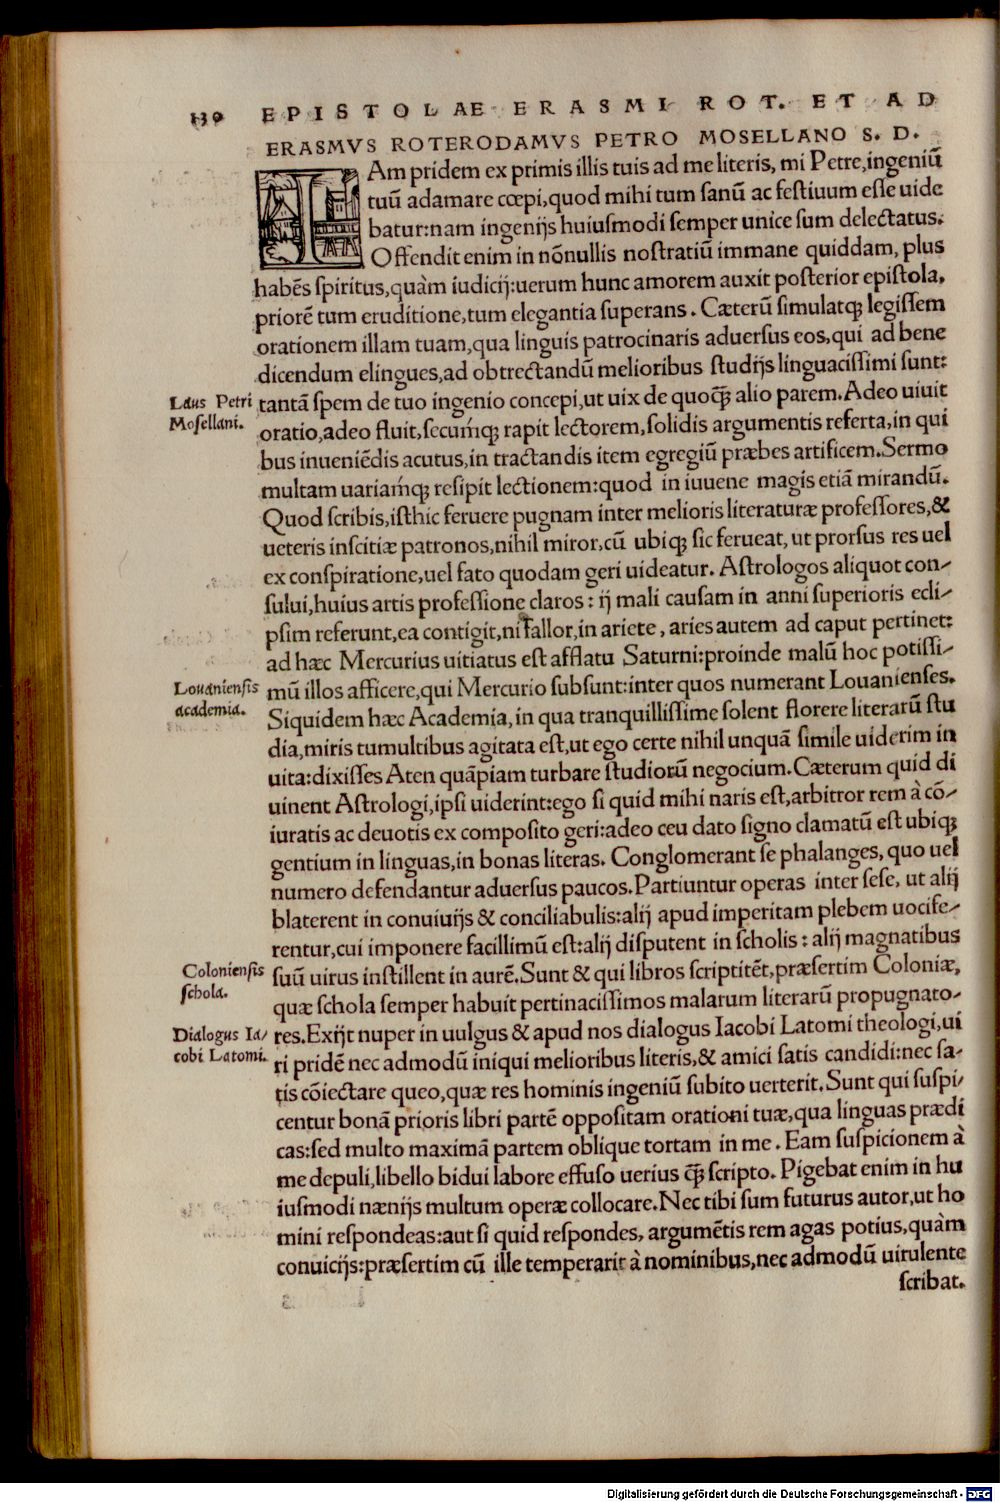 130 EPISTOLAE ERASMI ROT. ET AD
ERASMVS ROTERODAMVS PETRO MOSELLANO S. D.
IAm pridem ex primis illis tuis ad me literis, mi Petre, ingeniũ
tuũ adamare cœpi, quod mihi tum sanũ ac festiuum esse uide
batur: nam ingenijs huiusmodi semper unice sum delectatus.
Offendit enim in nõnullis nostratiũ immane quiddam, plus
habẽs spiritus, quàm iudicij: uerum hunc amorem auxit posterior epistola,
priorẽ tum eruditione, tum elegantia superans. Cæterũ simulatq; legissem
orationem illam tuam, qua linguis patrocinaris aduersus eos, qui ad bene
dicendum elingues, ad obtrectandũ melioribus studijs linguacissimi sunt:
Laus Petri
Mosellani.
tantã spem de tuo ingenio concepi, ut uix de quoq̃ alio parem. Adeo uiuit
oratio, adeo fluit, secumq́; rapit lectorem, solidis argumentis referta, in qui
bus inueniẽdis acutus, in tractandis item egregiũ præbes artificem. Sermo
multam uariamq́; resipit lectionem: quod in iuuene magis etiã mirandũ.
Quod scribis, isthic feruere pugnam inter melioris literaturæ professores, &
ueteris inscitiæ patronos, nihil miror, cũ ubiq; sic ferueat, ut prorsus res uel
ex conspiratione, uel fato quodam geri uideatur. Astrologos aliquot con-
sului, huius artis professione claros: ij mali causam in anni superioris ecli-
psim referunt, ea contigit, ni fallor, in ariete, aries autem ad caput pertinet:
ad hæc Mercurius uitiatus est afflatu Saturni: proinde malũ hoc potissi-
Louaniensis
academia.
mũ illos afficere, qui Mercurio subsunt: inter quos numerant Louanienses.
Siquidem hæc Academia, in qua tranquillissime solent florere literarũ stu
dia, miris tumultibus agitata est, ut ego certe nihil unquã simile uiderim in
uita: dixisses Aten quãpiam turbare studiorũ negocium. Cæterum quid di
uinent Astrologi, ipsi uiderint: ego si quid mihi naris est, arbitror rem à cõ-
iuratis ac deuotis ex composito geri: adeo ceu dato signo clamatũ est ubiq;
gentium in linguas, in bonas literas. Conglomerant se phalanges, quo uel
numero defendantur aduersus paucos. Partiuntur operas inter sese, ut alij
blaterent in conuiuijs & conciliabulis: alij apud imperitam plebem uocife-
rentur, cui imponere facillimũ est: alij disputent in scholis: alij magnatibus
Coloniensis
schola.
suũ uirus instillent in aurẽ. Sunt & qui libros scriptitẽt, præsertim Coloniæ,
quæ schola semper habuit pertinacissimos malarum literarũ propugnato-
Dialogus Ia-
cobi Latomi.
res. Exijt nuper in uulgus & apud nos dialogus Iacobi Latomi theologi, ui
ri pridẽ nec admodũ iniqui melioribus literis, & amici satis candidi: nec sa-
tis cõiectare queo, quæ res hominis ingeniũ subito uerterit. Sunt qui suspi-
centur bonã prioris libri partẽ oppositam orationi tuæ, qua linguas prædi
cas: sed multo maximã partem oblique tortam in me. Eam suspicionem à
me depuli, libello bidui labore effuso uerius q̃ scripto. Pigebat enim in hu
iusmodi nænijs multum operæ collocare. Nec tibi sum futurus autor, ut ho
mini respondeas: aut si quid respondes, argumẽtis rem agas potius, quàm
conuicijs: præsertim cũ ille temperarit à nominibus, nec admodũ uirulente
scribat.
Digitalisierung gefördert durch die Deutsche Forschungsgemeinschaft - DFG